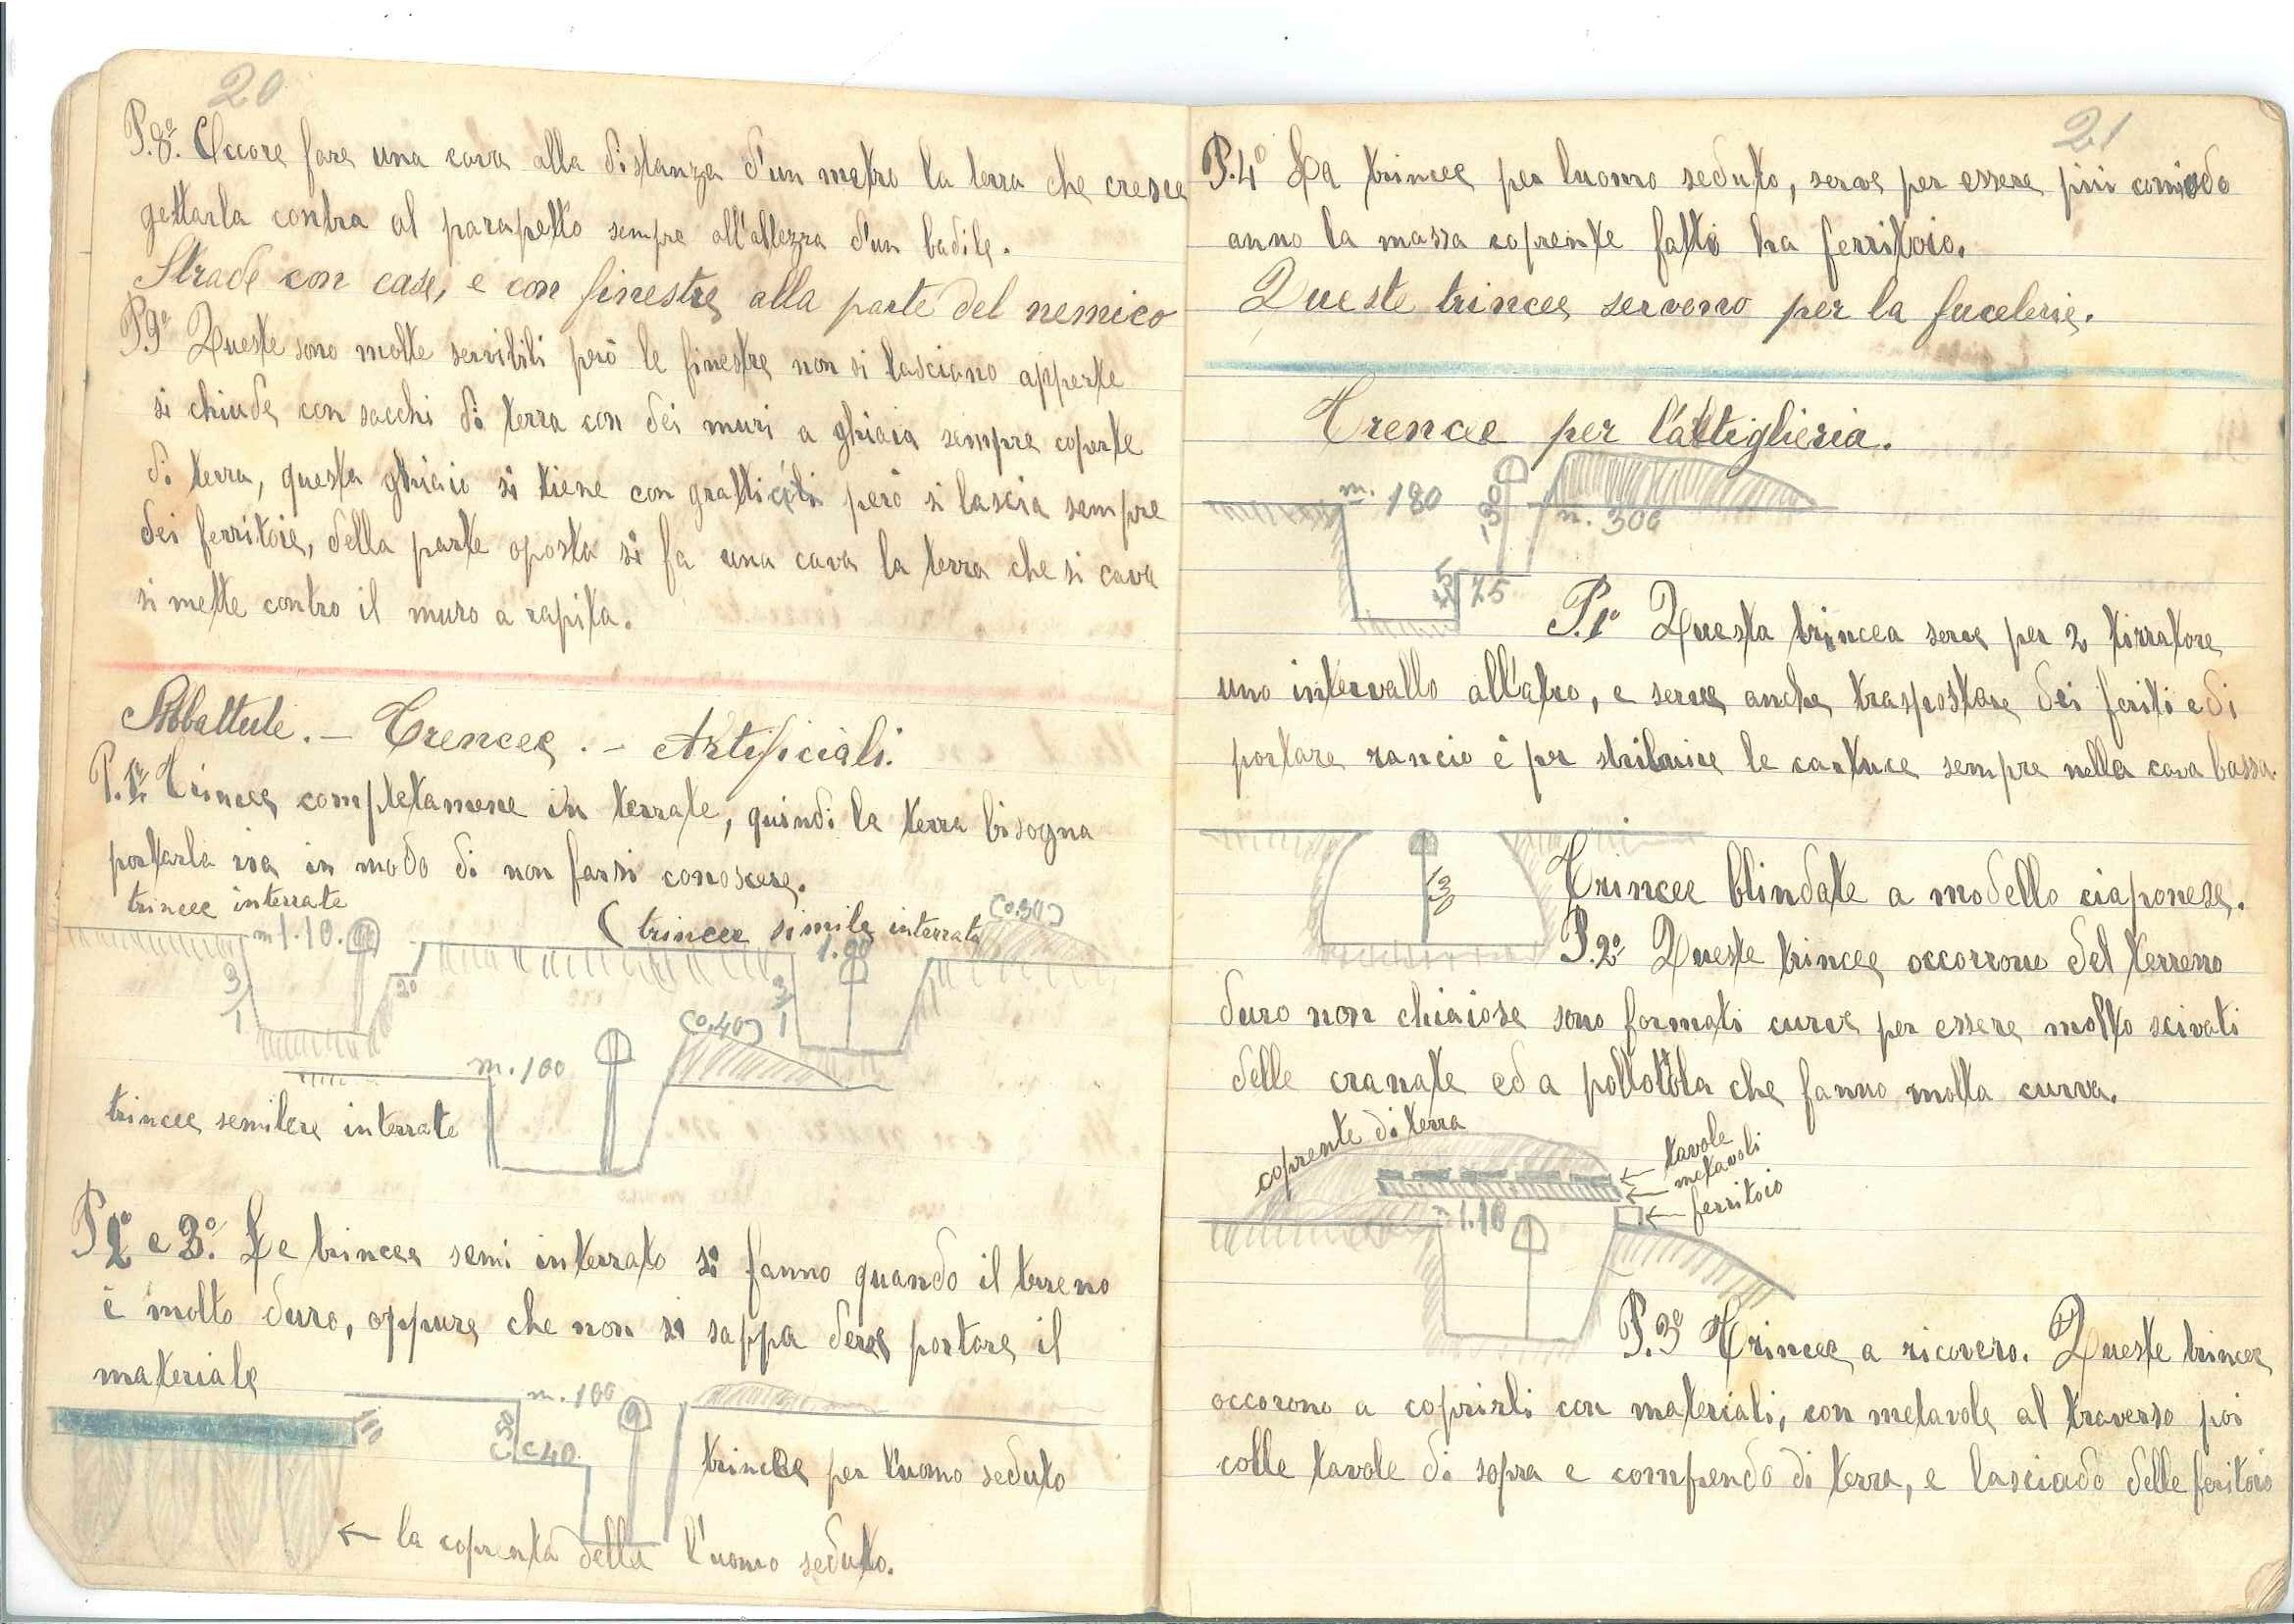 20
P.8º. Occore fare una cava alla distanza d'un metro la terra che cresce
gettarla contra al parapetto sempre all'altezza d'un badile.
Strade con case, e con finestre alla parte del nemico
P9º Queste sono molte servibili però le finestre non si lasciano apperte
si chiude con sacchi di terra con dei muri a ghiaia sempre coperte
di terra, questa ghiaia si tiene con gratticoli però si lascia sempre
dei ferritoie, della parte oposta si fa una cava la terra che si cava
si mette contro il muro a rapita.
Abbattute. - Trencee. - Artificiali.
P.1º Trincee completamene in terrate, quindi la terra bisogna
portarla via in modo di non farsi conoscere.
trincee interrate
m 1.10.
3/1
20
( trincee simile interrata
(0.30)
1.00
3/1
(0.40)
m. 100
trincee semilere interrate
P2º e 3º. Le trincee semi interrato si fanno quando il terreno
è molto duro, oppure che non si sappa deve portare il
materiale
m. 100
c.50
c 40.
trincee per l'uomo seduto
← la coprenta della l'uomo seduto.
21
P.4º La trincee per luomo seduto, serve per essere più comodo
anno la massa coprente fatto ha ferritoio.
Queste trincee servono per la fucelerie.
Trencee per l'altiglieria.
m. 180
1,30
n. 300
75
P.1º Questa trincea serve per 2 tirratore
uno intervallo all'atro, e serve anche trasportare dei feriti e di
portare rancio è per stribuire le cartuce sempre nella cava bassa.
130
Trincee blindate a modello ciaponese.
P.2º Queste trincee occorrone del terreno
duro non chiaiose sono formati curve per essere molto scivati
delle cranate ed a pollottola che fanno molta curva.
coprente di terra
← tavole
← metavoli
← ferritoio
1.10
P.3º Trincee a ricovero. Queste trincee
occorono a coprirli con materiali, con metavole al traverso poi
colle tavole di sopra e comprendo di terra, e lasciado delle feritoio